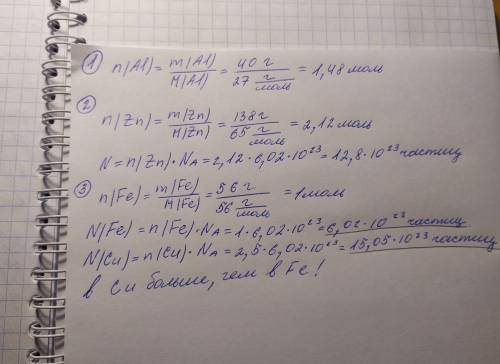 ① n(Al) = m(Al)/M(Al) = 40 г/27 г/моль = 1,48 моль
②
n(Zn) = m(Zn)/M(Zn) = 138 г/65 г/моль = 2,12 моль
N = n(Zn) · NA = 2,12 · 6,02 · 10²³ = 12,8 · 10²³ частиц
③
n(Fe) = m(Fe)/M(Fe) = 56 г/56 г/моль = 1 моль
N(Fe) = n(Fe) · NA = 1 · 6,02 · 10²³ = 6,02 · 10²³ частиц
N(Cu) = n(Cu) · NA = 2,5 · 6,02 · 10²³ = 15,05 · 10²³ частиц
в Cu больше, чем в Fe!